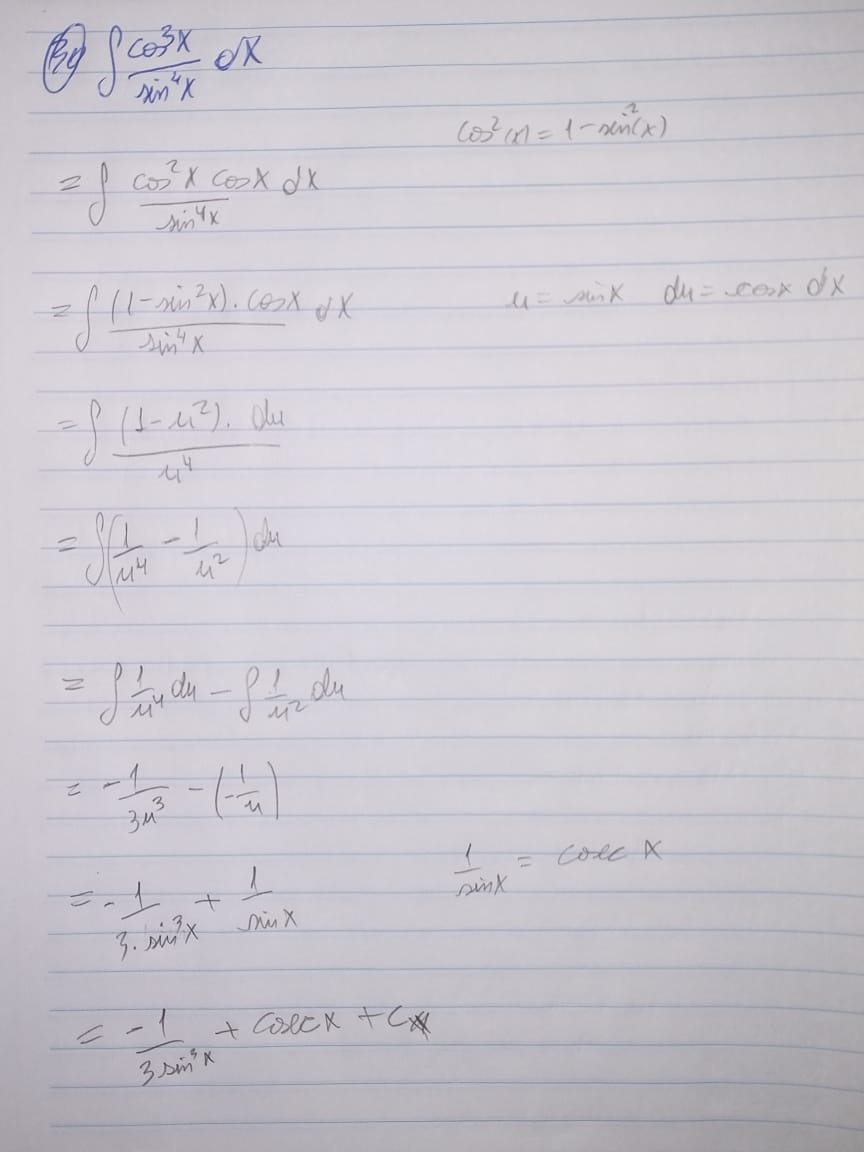 39) ∫ cos³x / sin⁴x dx
cos²(x) = 1 - sen²(x)
= ∫ cos²x cosx dx / sin⁴x
= ∫ (1-sin²x) . cosx dx / sin⁴x
u = sinx du = cosx dx
= ∫ (1-u²) . du / u⁴
= ∫ (1/u⁴ - 1/u²) du
= ∫ 1/u⁴ du - ∫ 1/u² du
= -1/3u³ - (-1/u)
1/sinx = cosec x
= -1/3.sin³x + 1/sinx
= -1/3sin³x + cosecx + C